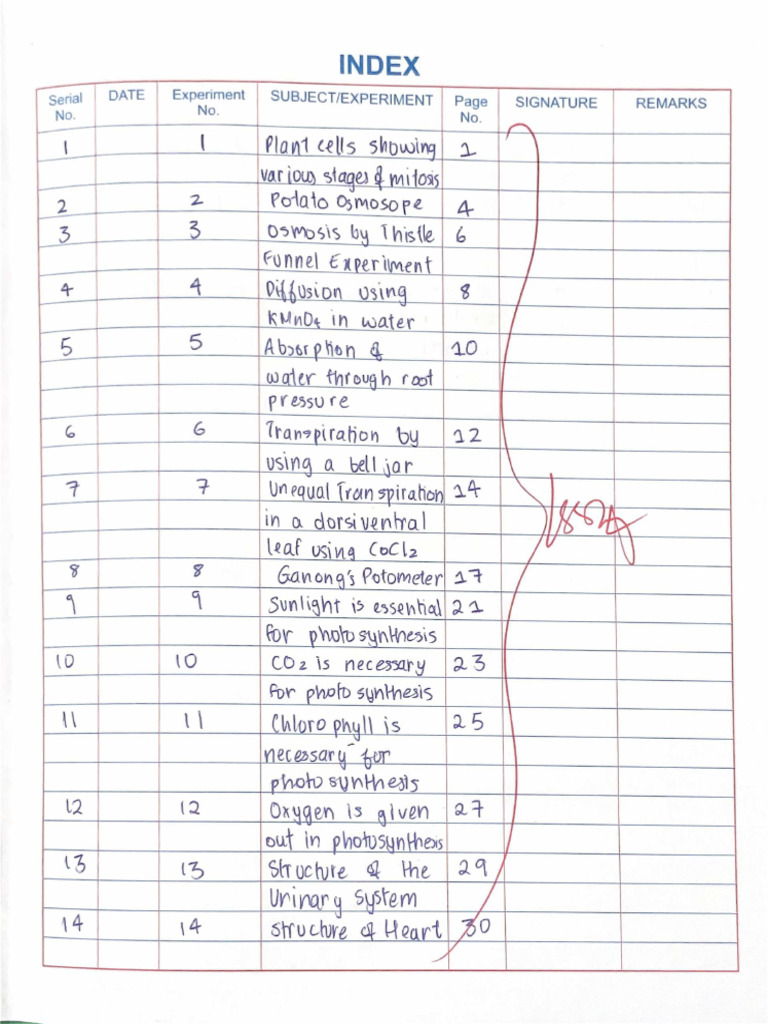 INDEX
Serial No. DATE Experiment No. SUBJECT/EXPERIMENT Page No. SIGNATURE REMARKS
1 1 Plant cells showing 1
various stages of mitosis
2 2 Potato Osmosope 4
3 3 Osmosis by Thistle 6
Funnel Experiment
4 4 Diffusion using 8
KMnO4 in water
5 5 Absorption of 10
water through root
pressure
6 6 Transpiration by 12
using a bell jar
7 7 Unequal Transpiration 14
in a dorsiventral
leaf using CoCl2
8 8 Ganong's Potometer 17
9 9 Sunlight is essential 21
for photosynthesis
10 10 CO2 is necessary 23
for photosynthesis
11 11 Chlorophyll is 25
necessary for
photosynthesis
12 12 Oxygen is given 27
out in photosynthesis
13 13 Structure of the 29
Urinary System
14 14 Structure of Heart 30